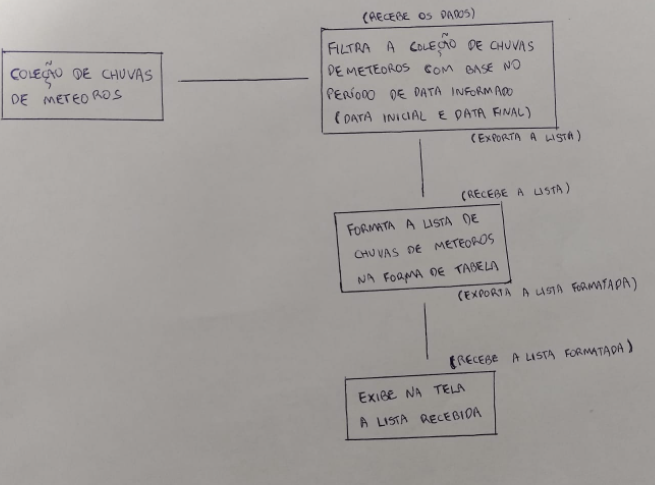 (RECEBE OS DADOS)
COLEÇÃO DE CHUVAS
DE METEOROS
FILTRA A COLEÇÃO DE CHUVAS
DE METEOROS COM BASE NO
PERÍODO DE DATA INFORMADO
(DATA INICIAL E DATA FINAL)
(EXPORTA A LISTA)
(RECEBE A LISTA)
FORMATA A LISTA DE
CHUVAS DE METEOROS
NA FORMA DE TABELA
(EXPORTA A LISTA FORMATADA)
(RECEBE A LISTA FORMATADA)
EXIBE NA TELA
A LISTA RECEBIDA